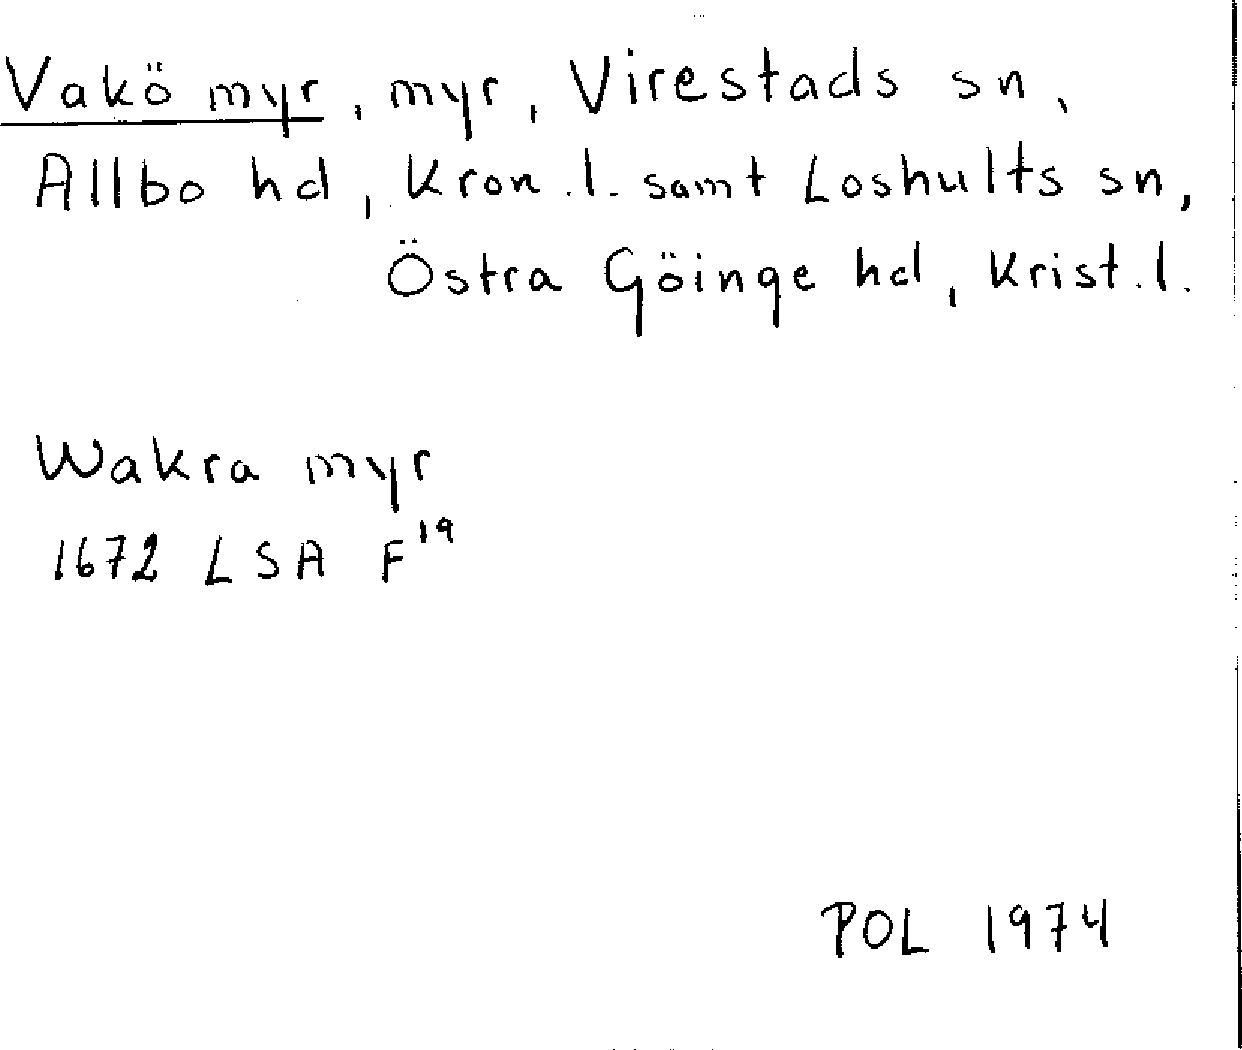 Vakö myr, myr, Virestads sn,
Allbo hd, Kron.l. samt Loshults sn,
Östra Göinge hd, Krist.l.
Wakra myr
1672 LSA F¹⁹
POL 1974